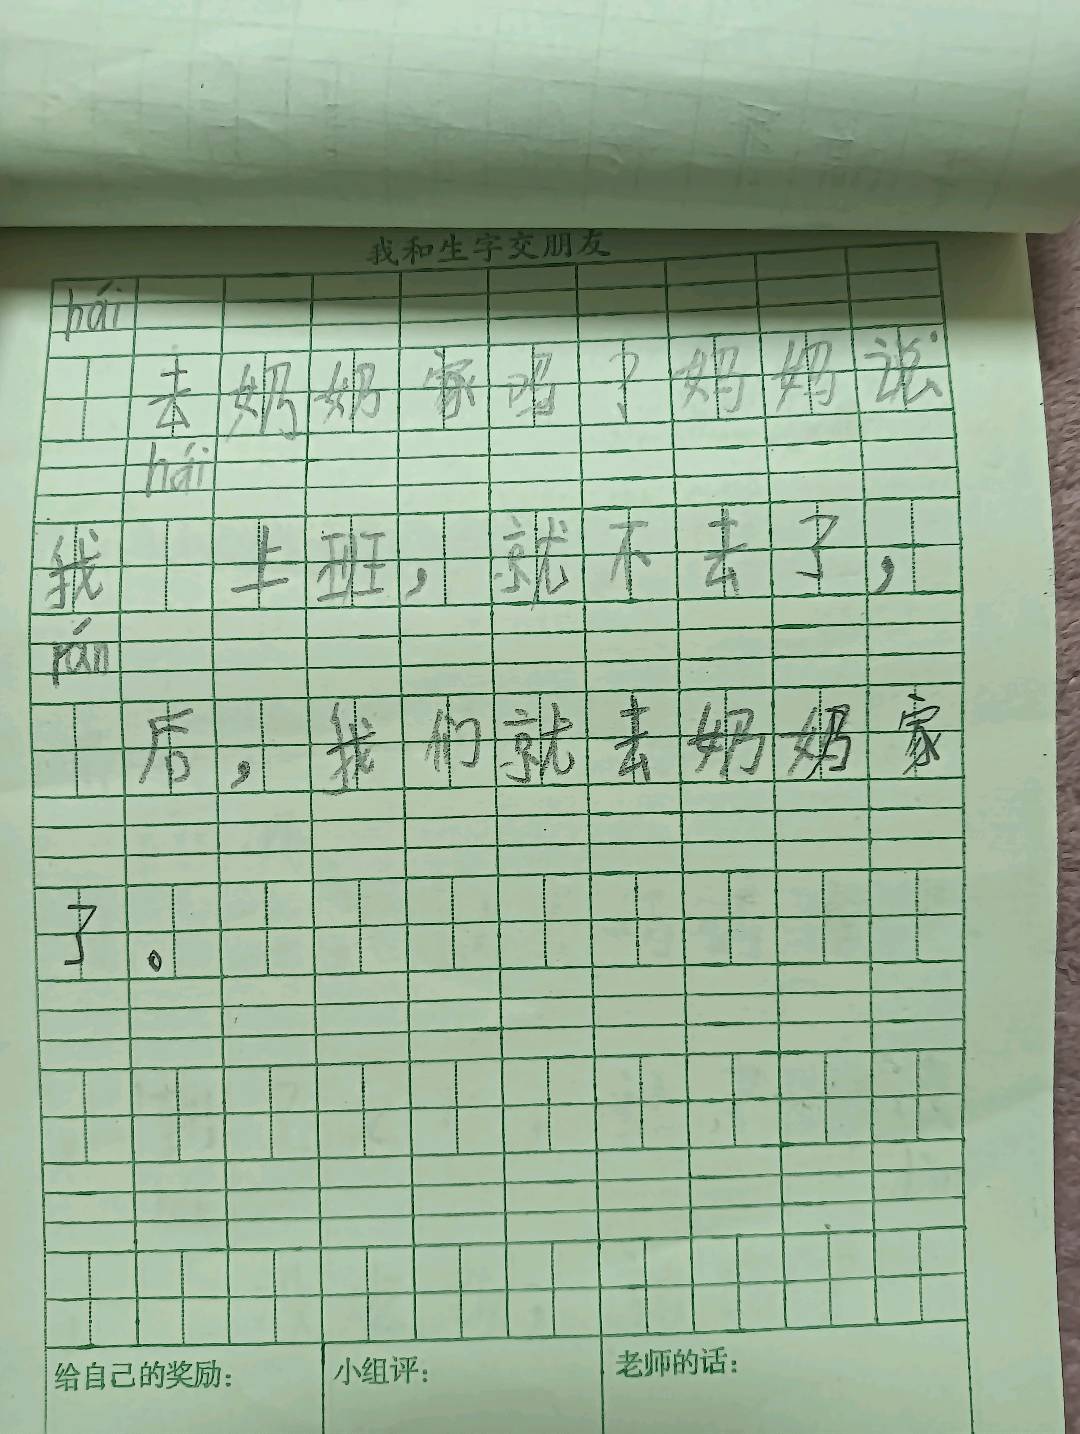 我和生字交朋友
hái
去奶奶家吗？妈妈说
hái
我 上班，就不去了，
rán
后，我们就去奶奶家
了。
给自己的奖励：
小组评：
老师的话：